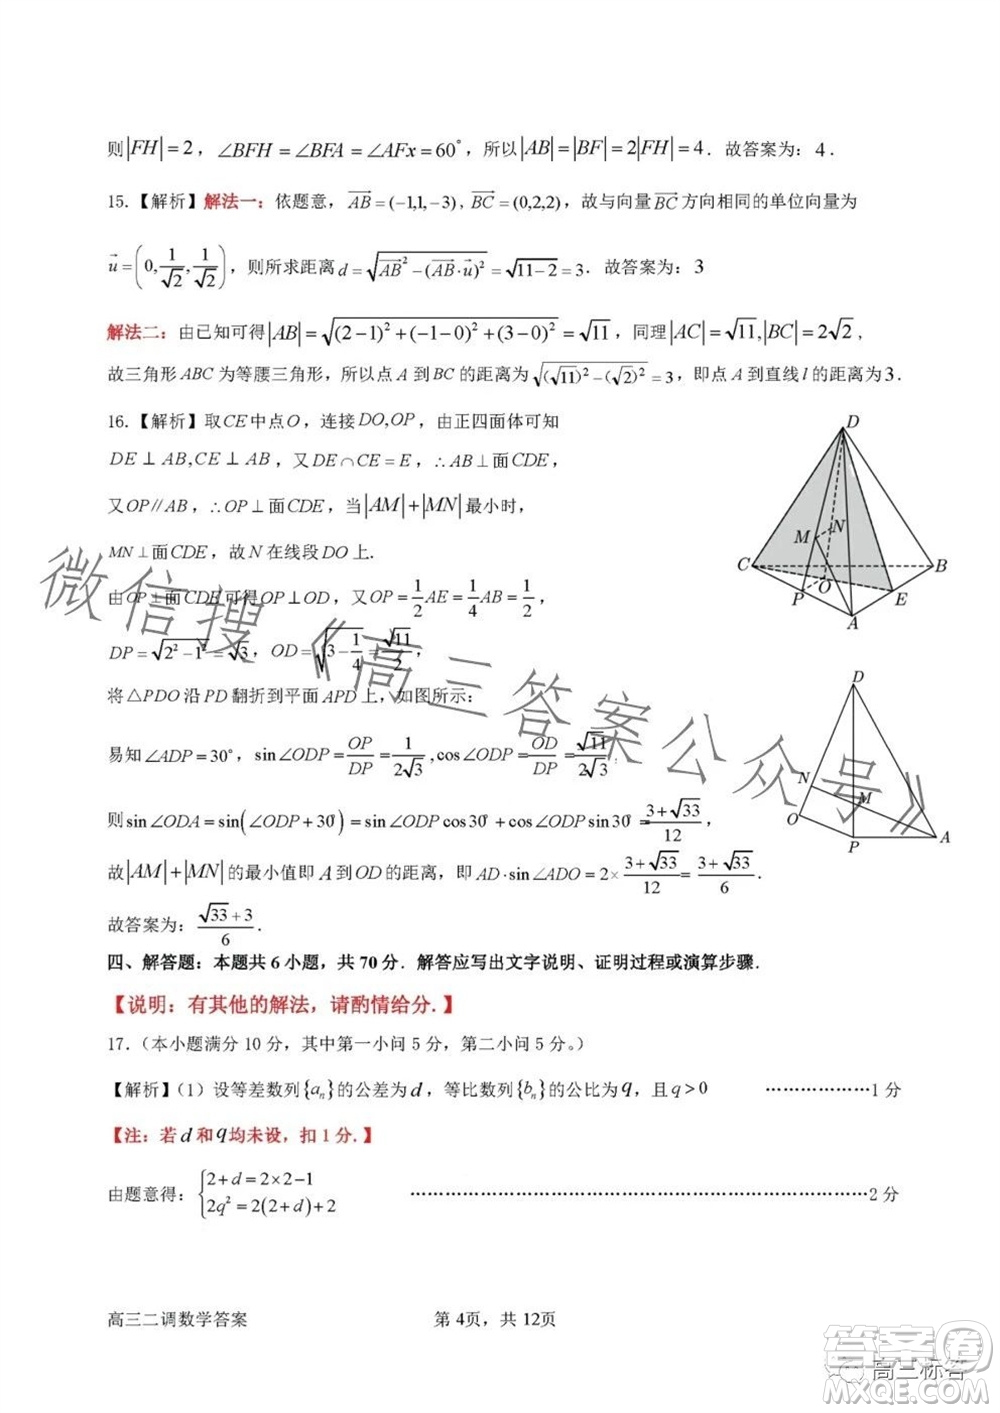 则|FH|=2，∠BFH=∠BFA=∠AFx=60°，所以|AB|=|BF|=2|FH|=4．故答案为：4．
15.【解析】解法一：依题意，$\overrightarrow{AB}$=(−1,1,−3)，$\overrightarrow{BC}$=(0,2,2)，故与向量$\overrightarrow{BC}$方向相同的单位向量为
$\vec{u}=\left(0,\frac{1}{\sqrt{2}},\frac{1}{\sqrt{2}}\right)$，则所求距离$d=\sqrt{\overrightarrow{AB}^2-(\overrightarrow{AB}\cdot\vec{u})^2}=\sqrt{11-2}=3$．故答案为：3
解法二：由已知可得$|AB|=\sqrt{(2-1)^2+(-1-0)^2+(3-0)^2}=\sqrt{11}$，同理$|AC|=\sqrt{11},|BC|=2\sqrt{2}$，
故三角形ABC为等腰三角形，所以点A到BC的距离为$\sqrt{(\sqrt{11})^2-(\sqrt{2})^2}=3$，即点A到直线l的距离为3．
16.【解析】取CE中点O，连接DO,OP，由正四面体可知
DE⊥AB,CE⊥AB，又DE∩CE=E，∴AB⊥面CDE，
又OP∥AB，∴OP⊥面CDE，当|AM|+|MN|最小时，
MN⊥面CDE，故N在线段DO上.
由OP⊥面CDE可得OP⊥OD，又$OP=\frac{1}{2}AE=\frac{1}{4}AB=\frac{1}{2}$，
$DP=\sqrt{2^2-1^2}=\sqrt{3}$，$OD=\sqrt{3-\frac{1}{4}}=\frac{\sqrt{11}}{2}$，
将△PDO沿PD翻折到平面APD上，如图所示：
易知∠ADP=30°，$\sin∠ODP=\frac{OP}{DP}=\frac{1}{2\sqrt{3}},\cos∠ODP=\frac{OD}{DP}=\frac{\sqrt{11}}{2\sqrt{3}}$，
则$\sin∠ODA=\sin(∠ODP+30°)=\sin∠ODP\cos30°+\cos∠ODP\sin30°=\frac{3+\sqrt{33}}{12}$，
故|AM|+|MN|的最小值即A到OD的距离，即$AD\cdot\sin∠ADO=2\times\frac{3+\sqrt{33}}{12}=\frac{3+\sqrt{33}}{6}$．
故答案为：$\frac{\sqrt{33}+3}{6}$．
D
M
N
C
B
O
P
E
A
D
N
M
O
P
A
四、解答题：本题共6小题，共70分．解答应写出文字说明、证明过程或演算步骤．
【说明：有其他的解法，请酌情给分.】
17.（本小题满分10分，其中第一小问5分，第二小问5分。）
【解析】（1）设等差数列{aₙ}的公差为d，等比数列{bₙ}的公比为q，且q>0 ………………1分
【注：若d和q均未设，扣1分.】
由题意得：$\begin{cases}2+d=2\times2-1\\2q^2=2(2+d)+2\end{cases}$ ……………………………………………………………………2分
高三二调数学答案 第4页，共12页
微信搜《高三答案公众号》
高三标答
答案圈
MXQE.COM